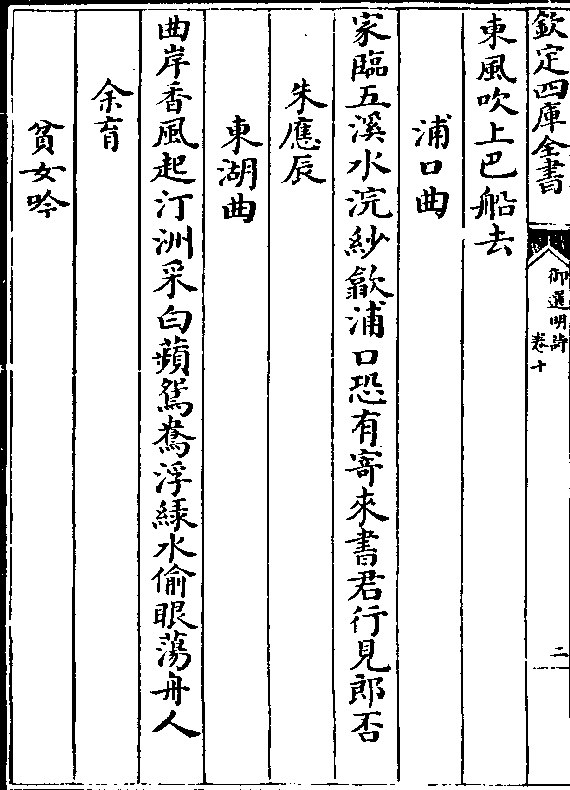 欽定四庫全書
御選明詩
卷十
二
東風吹上巴船去
浦口曲
家臨五溪水浣紗歙浦口恐有寄來書君行見郎否
朱應辰
東湖曲
曲岸香風起汀洲采白蘋鴛鴦浮緑水偷眼蕩舟人
余育
貧女吟